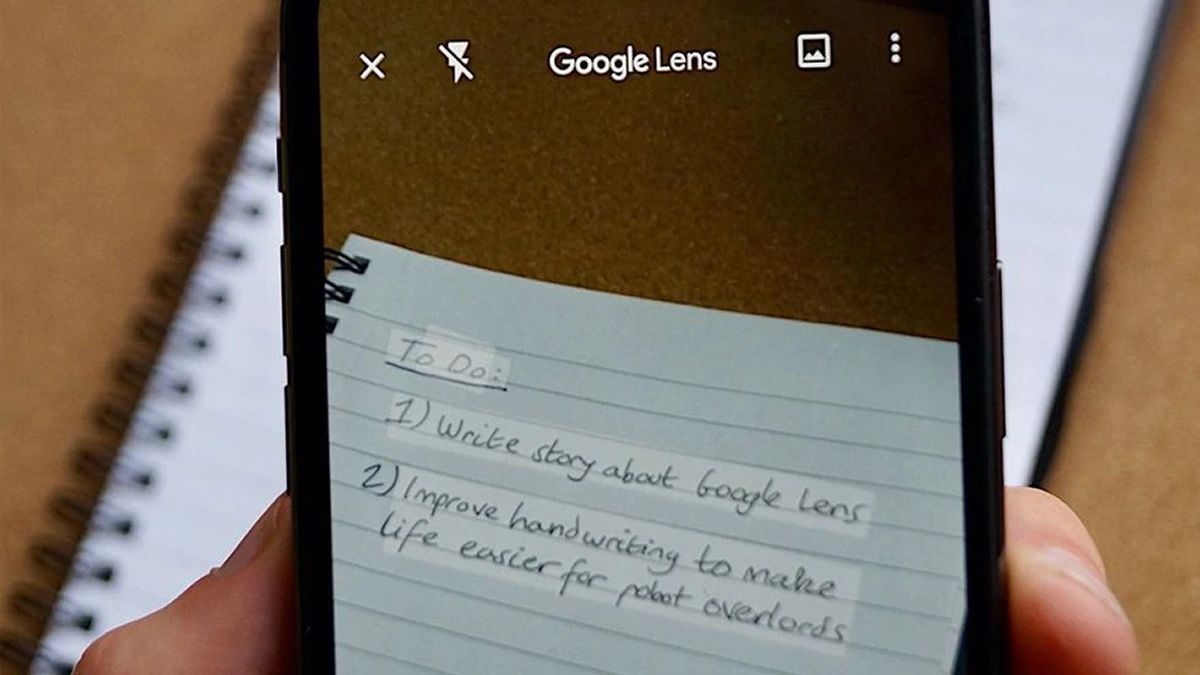 Google Lens
To Do:
1) Write story about Google Lens
2) Improve handwriting to make
life easier for robot overlords